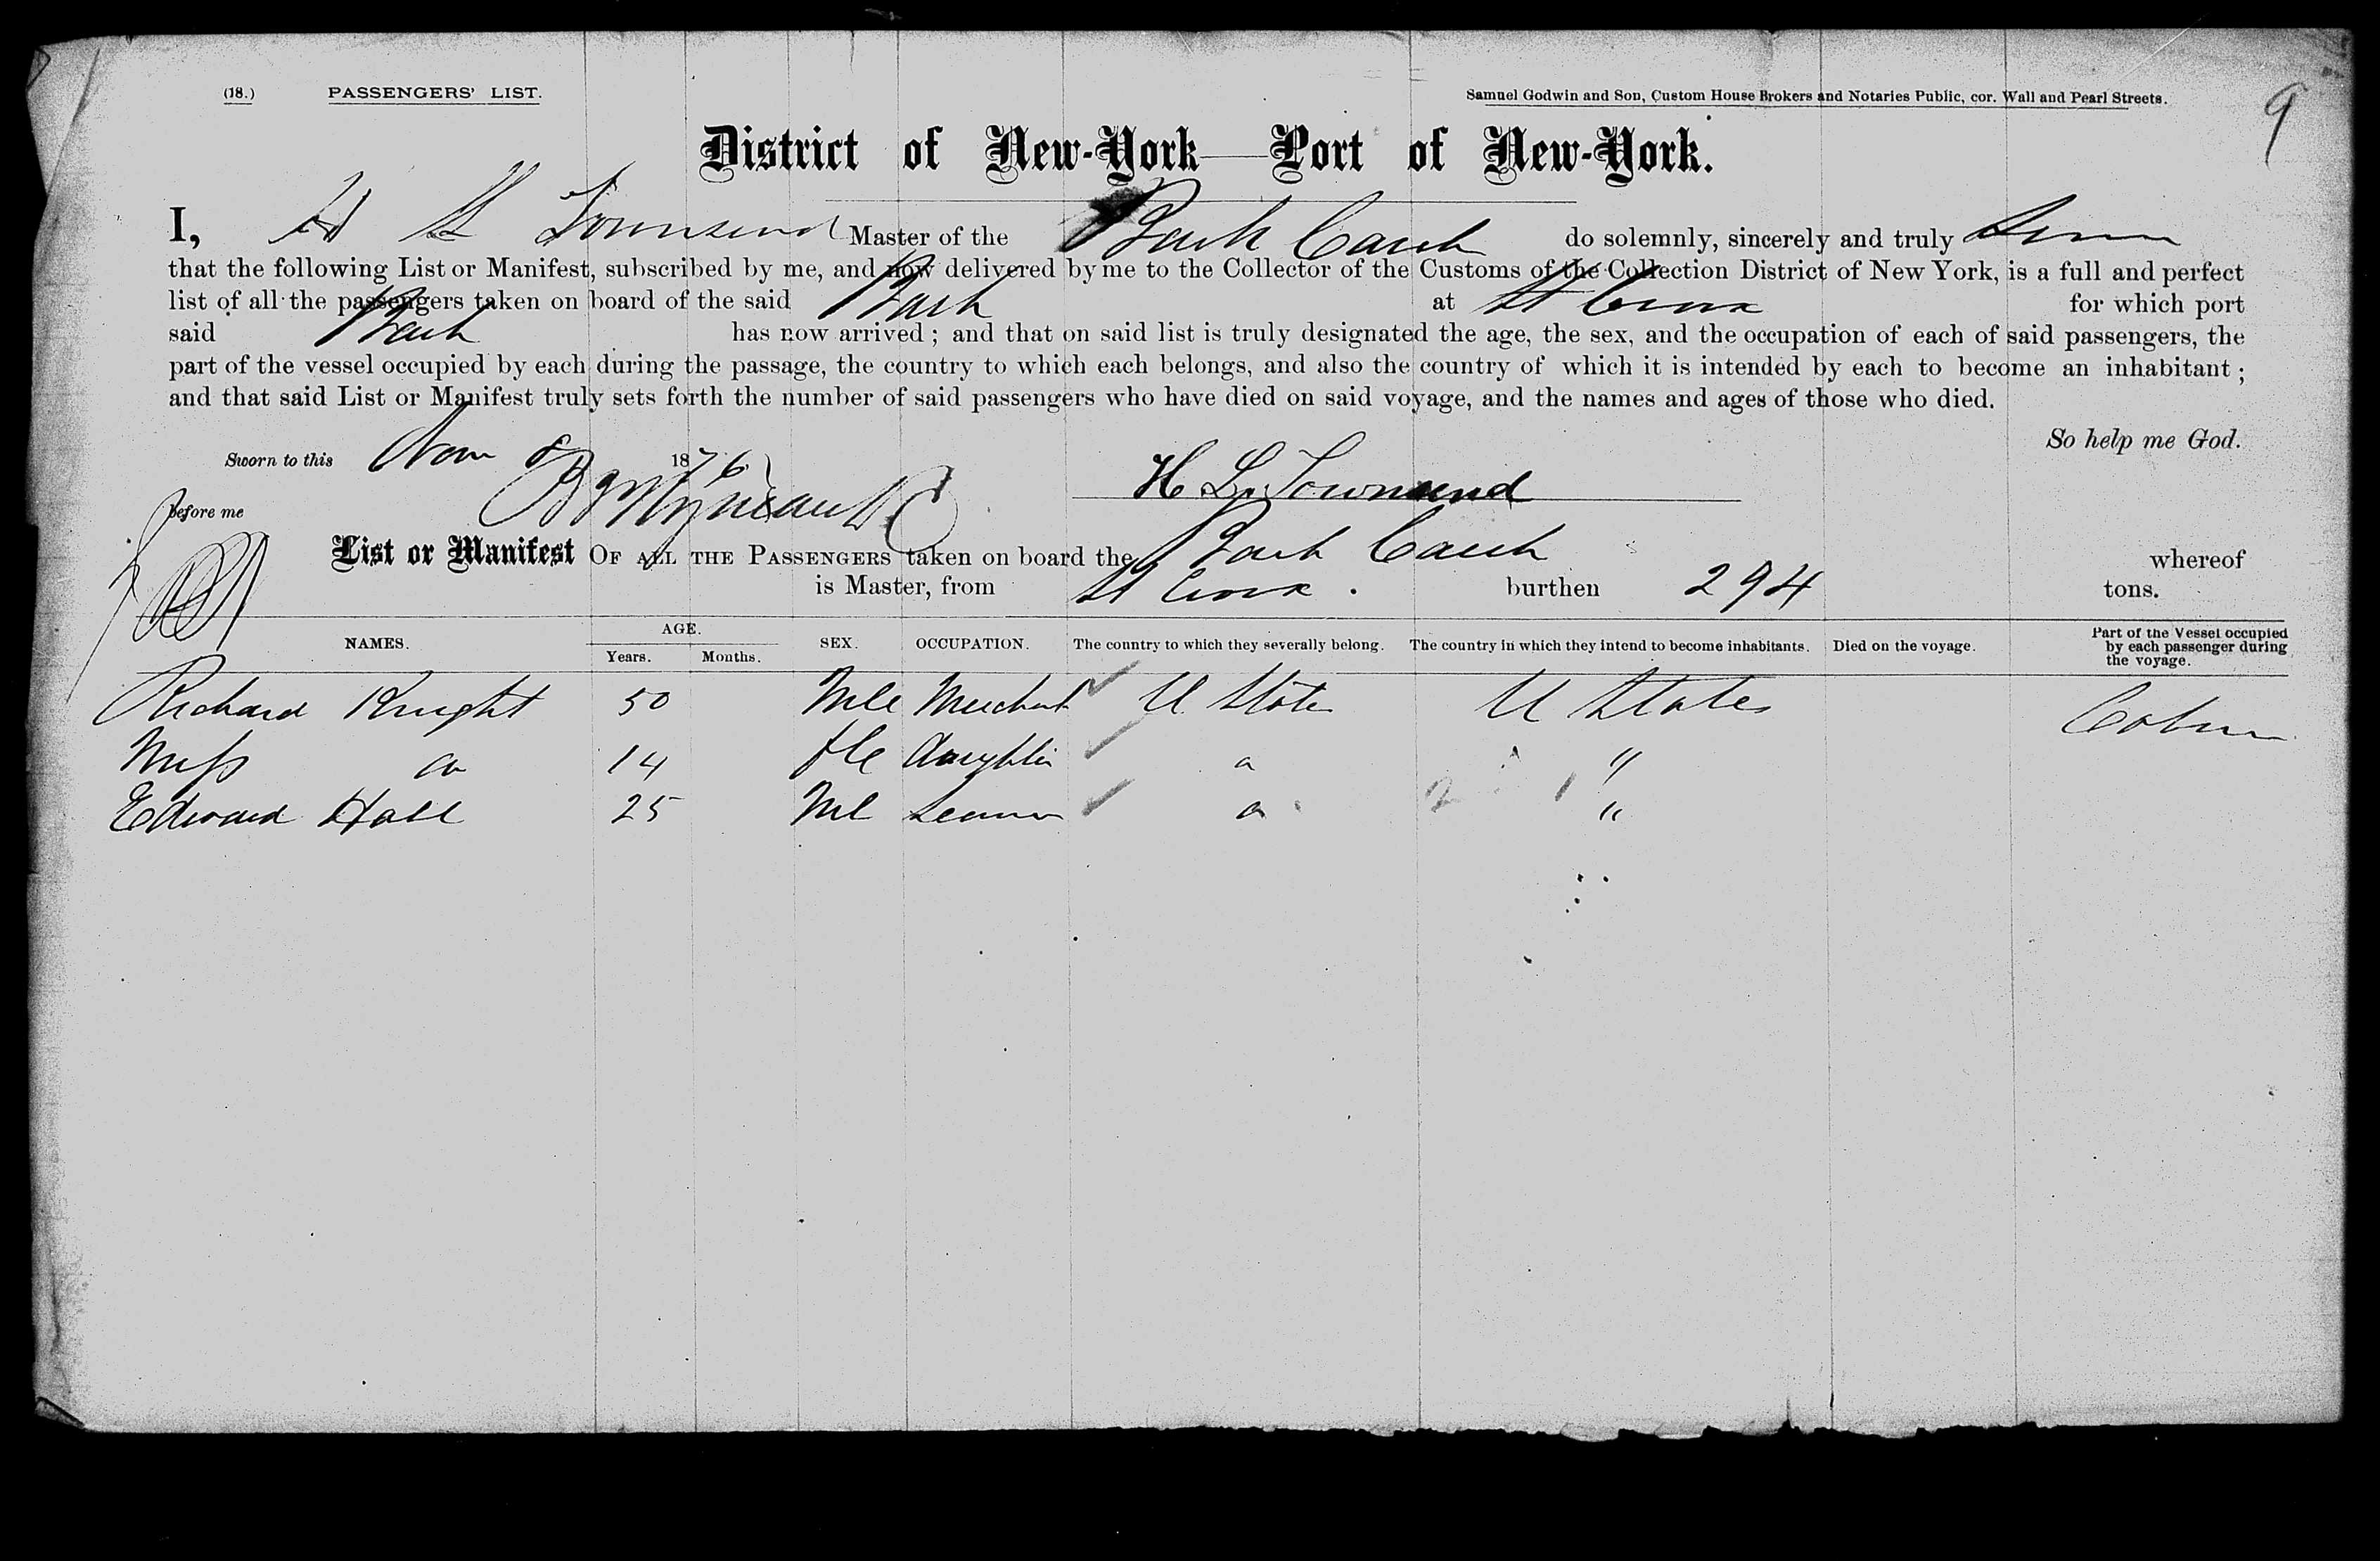 (18.) PASSENGERS' LIST. Samuel Godwin and Son, Custom House Brokers and Notaries Public, cor. Wall and Pearl Streets. 9
District of New-York—Port of New-York.
I, H L Townsend Master of the Bark do solemnly, sincerely and truly
that the following List or Manifest, subscribed by me, and now delivered by me to the Collector of the Customs of the Collection District of New York, is a full and perfect
list of all the passengers taken on board of the said Bark at St Croix for which port
said Bark has now arrived; and that on said list is truly designated the age, the sex, and the occupation of each of said passengers, the
part of the vessel occupied by each during the passage, the country to which each belongs, and also the country of which it is intended by each to become an inhabitant;
and that said List or Manifest truly sets forth the number of said passengers who have died on said voyage, and the names and ages of those who died.
So help me God.
Sworn to this Nov 8 1876
H L Townsend
before me
List or Manifest OF ALL THE PASSENGERS taken on board the Bark whereof
is Master, from St Croix. burthen 294 tons.
NAMES. AGE. Years. Months. SEX. OCCUPATION. The country to which they severally belong. The country in which they intend to become inhabitants. Died on the voyage. Part of the Vessel occupied by each passenger during the voyage.
Richard Knight 50 Mle Merchant U States U States Cabin
Miss do 14 fle daughter " "
Edward Hall 25 Ml Seaman " "